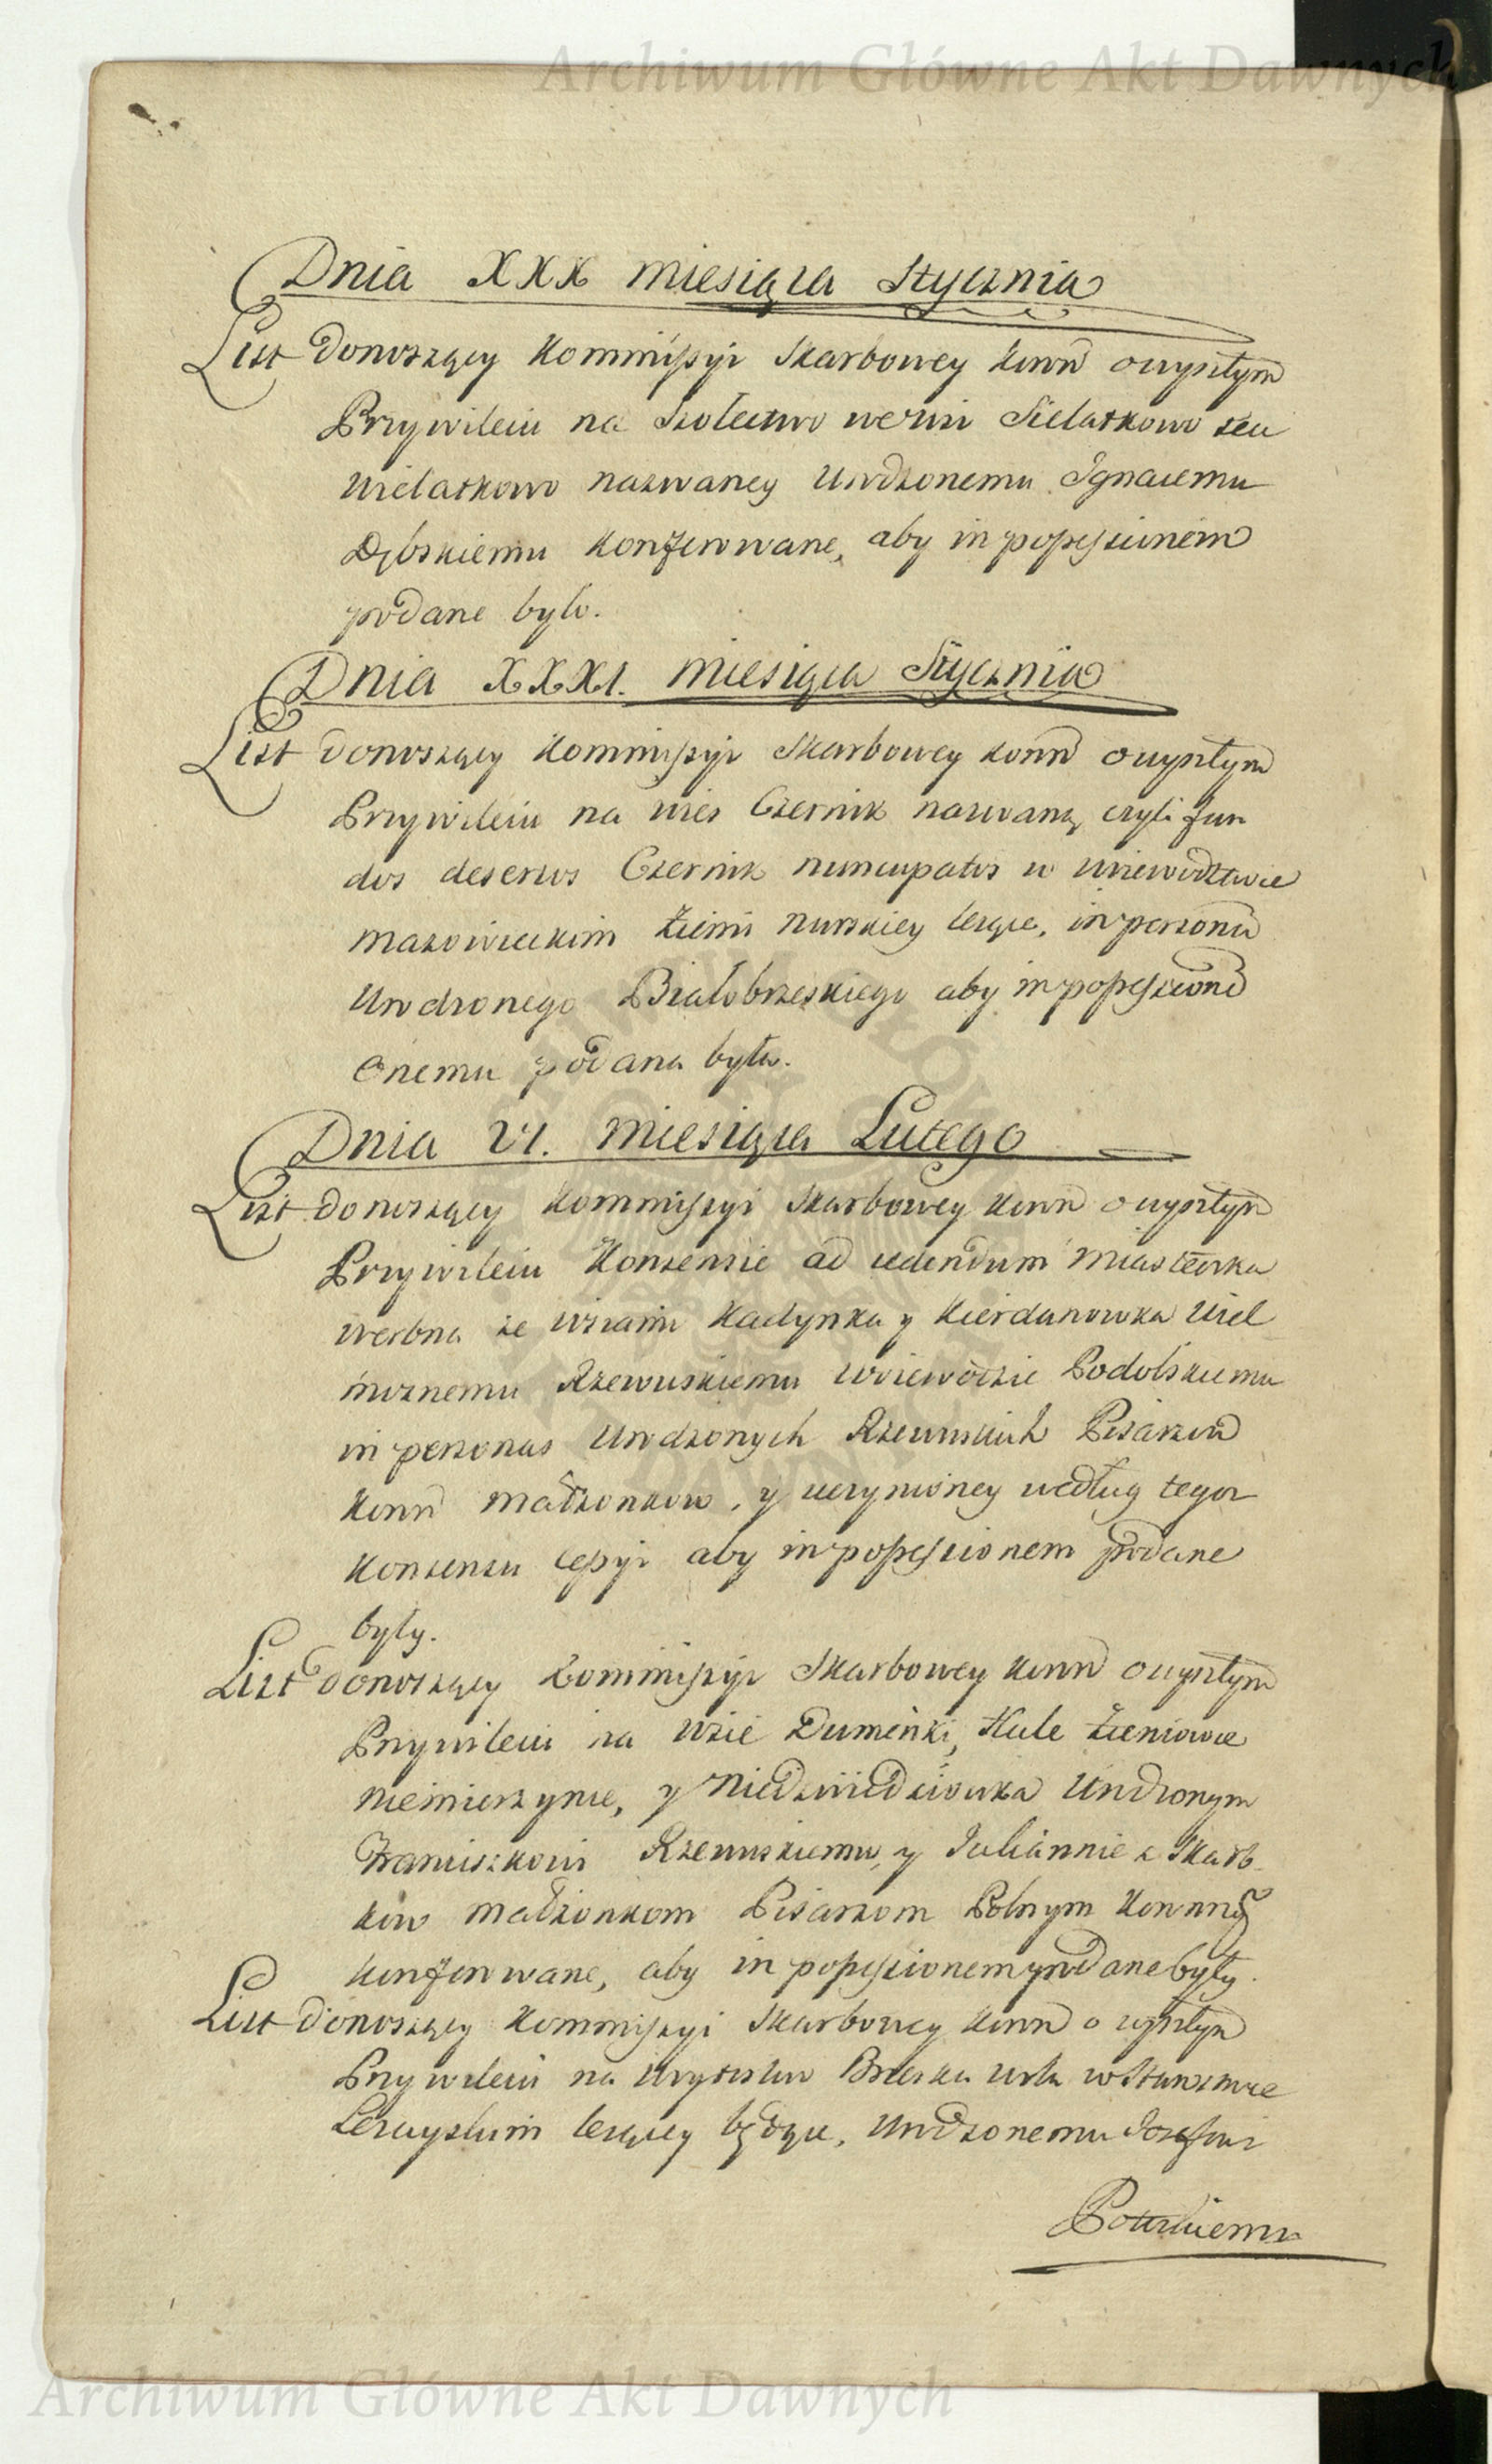 Archiwum Główne Akt Dawnych
Dnia XXX miesiąca Stycznia
List donoszący Kommissyi Skarbowey Koron o wyszłym
Przywileiu na Szolectwo we wsi Sielatkowo seu
Wielatkowo nazwaney Urodzonemu Ignacemu
Dębskiemu konferowane, aby in possessionem
podane było.
Dnia XXXI. miesiąca Stycznia
List donoszący Kommissyi Skarbowey Koron o wyszłym
Przywileiu na wieś Czernik nazwaną czyli fun
dos desertos Czernik nuncupatos w Woiewodztwie
Mazowieckim Ziemi Nurskiey leżące, in personam
Urodzonego Białobrzeskiego aby in possession
onemu podana była.
Dnia VI. miesiąca Lutego
List donoszący Kommissyi Skarbowey Koron o wyszłym
Przywileiu Konsensie ad cedendum Miasteczka
Werbna ze wsiami Kadynka y Kierdanowka Wiel
możnemu Rzewuskiemu Woiewodzie Podolskiemu
in personas Urodzonych Rzewuskich Pisarzow
Koron Małżonkow, y uczynioney według tegoż
Konsensu Cessyi aby in possessionem podane
były.
List donoszący Kommissyi Skarbowey Koron o wyszłym
Przywileiu na Wsie Dumenki, Hule Zieniowce
Niemierzynce, y Niedzwiedziowka Urodzonym
Franciszkowi Rzewuskiemu, y Juliannie z Skarb
kow Małżonkom Pisarzom Polnym Koronnym
konferowane, aby in possessionem podane były.
List donoszący Kommissyi Skarbowey Koron o wyszłym
Przywileiu na Woytostwo Brzeska Wola w Starostwie
leżącey będące, Urodzonemu Jozefowi
Archiwum Główne Akt Dawnych